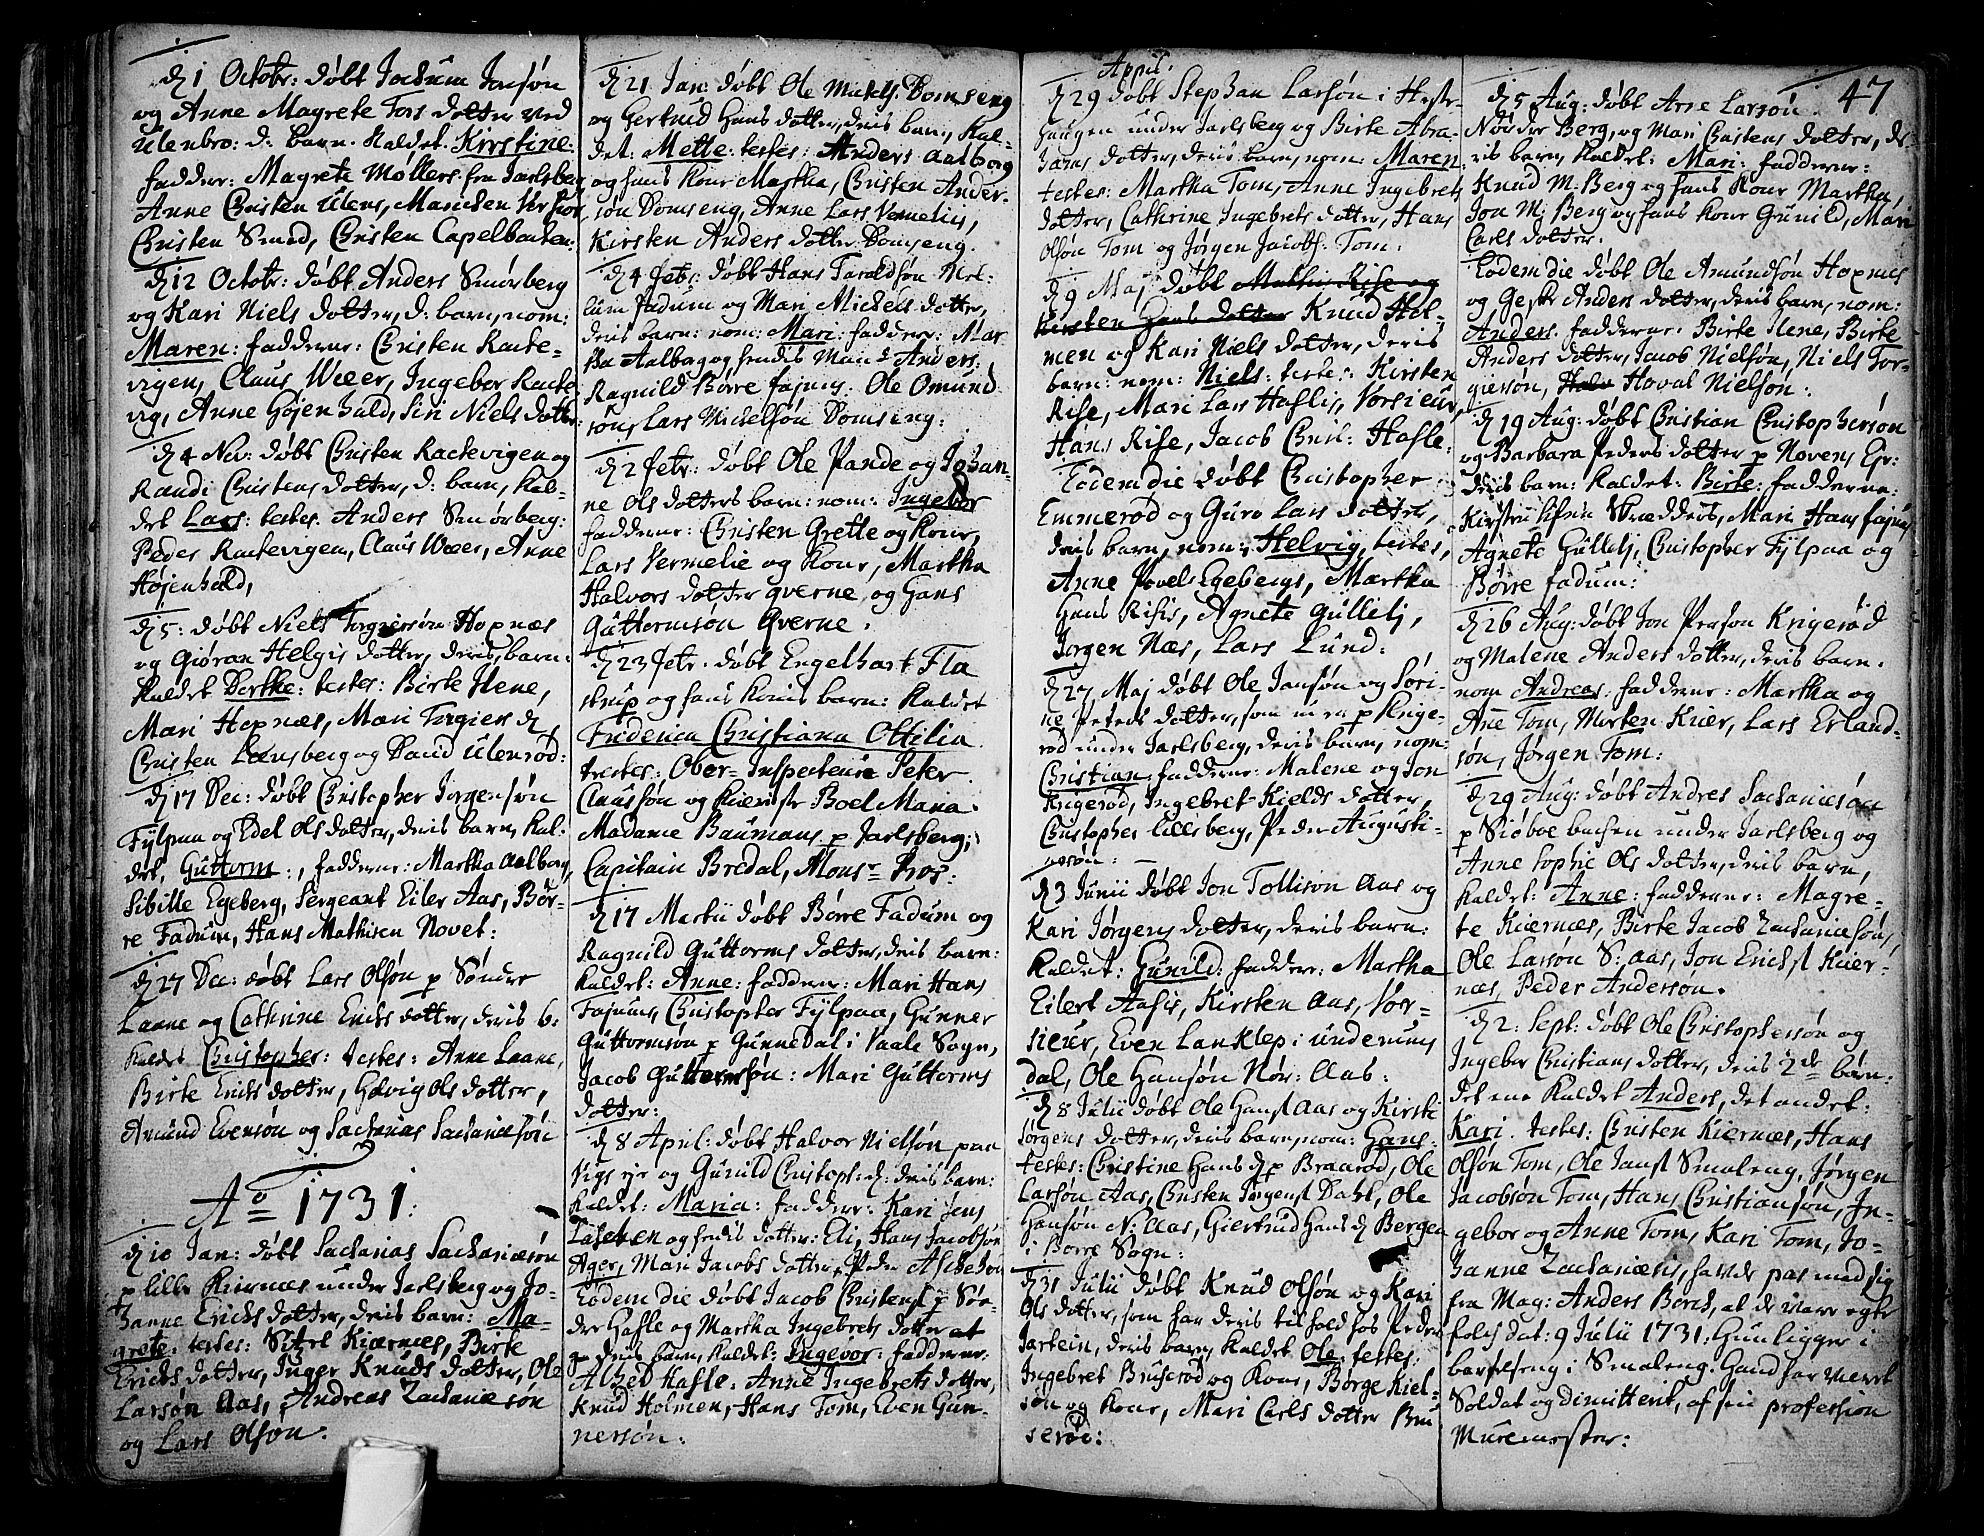 d 1 Octobr: døbt Jochum Jonsøn
og Anne Magrete Tors dotter ved
Ulenbro: d: barn. Kaldet Kirstine:
faddere: Magrete Møllers fra Jarlsberg
Anne Christen Ulens, Marichen
Christen Smed, Christen Capelbachen:
d 12 Octobr: døbt Anders Smørberg
og Kari Niels dotter, d: barn, nom:
Maren: fadderne: Christen Racke-
vigen, Claus Weer, Ingebor Racke
vig, Anne Højenhald, Siri Niels dotter
d 4 Nov: døbt Christen Rackevigen og
Randi Christens dotter, d: barn, Kal-
det Lars: testes: Anders Smørberg:
Peder Rackevigen, Claus Weer, Anne
Højenhald,
d 5: døbt Niels Torgiersøn Hopnæs
og Giøran Helgis dotter, deris barn:
Kaldet Dorthe: testes: Birte Ilene,
Mari Hopnæs, Mari Torgiers d,
Christen Lænsberg og David Ulenrød:
d 17 Dec: døbt Christopher Jørgensøn
Fylpaa og Edel Ols dotter, deris barn, Kal-
det, Guttorm:, faddere: Martha Aalborg,
Sibille Egeberg, Sergeant Eiler Aas, Bør-
re Fadum, Hans Mathisen Novet:
d 27 Dec: døbt Lars Olsøn p Søndre
Laane og Cathrine Erichs dotter, deris b:
Kaldet Christopher: testes: Anne Laane,
Birte Erichs dotter, Helvig Ols dotter,
Amund Evensøn og Sacharias Sachariæsøn
Aº 1731:
d 10 Jan: døbt Sacharias Sachariæsøn
p lille Kiærnæs under Jarlsberg og Jo-
hanne Erichs dotter, deris barn: Ma-
grete: testes: Sitzel Kiærnæs, Birte
Erichs dotter, Inger Knuds dotter, Ole
Larsøn Aas, Andreas Zachariæsøn
og Lars Olsøn:
d 21 Jan: døbt Ole Michels: Domseng
og Gertrud Hans dotter, deris barn, Kal-
det: Mette: testes: Anders Aalborg
og hans Kone Martha, Christen Ander-
søn Domseng, Anne Lars Vermelies,
Kirsten Anders dotter Domseng.
d 4 febr: døbt Hans Taraldsøn
lum Fadum og Mari Michels dotter,
deris barn: nom: Mari: fadderne: Mar
tha Aalborg og hendis Mand Anders:
Ragnild Børre Fajums. Ole Omund
søn, Lars Michelsøn Domseng:
d 2 febr: døbt Ole Pande og Johan-
ne Ols dotters barn: nom: Ingebor
fadderne: Christen Grette og Kone,
Lars Vermelie og Kone, Martha
Halvors dotter Qverne, og Hans
Guttormsøn Qverne.
d 23 febr: døbt Engelhart Fla
strup og hans Konis barn: Kaldet
Friderica Christiana Ottilia
testes: Ober-Inspecteur Peter
Claussøn og Boel Maria.
Madame Baumans p Jarlsberg;
Capitain Bredal, Monsr Roos:
d 17 Martii døbt Børre Fadum og
Ragnild Guttorms dotter, deris barn:
Kaldet: Anne: fadderne: Mari Hans
Fajums, Christopher Fylpaa, Gunner
Guttormsøn p Gunnedal i Vaale Sogn,
Jacob Guttormsøn: Mari Guttorms
dotter:
d 8 April: døbt Halvor Nielsøn paa
Vigs eje og Gunild Christoph: d: deris barn:
Kaldet: Maria: faddere: Kari Jens
Laschen og hendis dotter: Eli, Hans Jacobsøn
Ager, Mari Jacobs dotter, Peder Aschehou
Eodem die døbt Jacob Christens: p Søn-
dre Hasle og Martha Ingebrets dotter
deris barn, Kaldet: Ingebor: fadderne:
Alhed Hasle, Anne Ingebrets dotter,
Knud Holmen, Hans Tom, Even Gun-
nersøn.
April:
d 29 døbt Stephan Larsøn i Heste-
haugen under Jarlsberg og Birte Abra-
hams dotter, deris barn, nom: Maren:
testes: Martha Tom, Anne Ingebrets
dotter, Cathrine Ingebrets dotter, Hans
Olsøn Tom og Jørgen Jacobs: Tom:
d 9 Maj døbt Mathis Rise og
Kirsten Hans dotter Knud Hol-
men og Kari Niels dotter, deris
barn: nom: Niels: testes: Kirsten
Rise, Mari Lars Haslis, Vorsieur,
Hans Rise, Jacob Chris: Hasle:
Eodem die døbt Christopher
Emmerød og Guro Lars dotter,
deris barn, nom: Helvig, testes,
Anne Povels Egebergs, Martha
Hans Risis, Agnete Gullelj,
Jørgen Næs, Lars Lund:
d 27 Maj døbt Ole Jansøn og Søri-
ne Peders dotter, som nu er p Krige-
rød under Jarlsberg, deris barn, nom:
Christian: fadderne: Malene og Jon
Krigerød, Ingebret Kields dotter,
Christopher Ullsberg, Peder Augusti-
nesøn:
d 3 Junii døbt Jon Tollison Aas og
Kari Jørgens dotter, deris barn:
Kaldet: Gunild: faddere: Martha
Eilert Aasis, Kirsten Aas, Vor-
sieur, Even Lanklep i underums
dal, Ole Hansøn Nør: Aas:
d 8 Julii døbt Ole Hans: Aas og Kirsti
Jørgens dotter, deris barn, nom: Hans:
testes: Christine Hans d p Braarød, Ole
Larsøn Aas, Christen Jørgens: Dahl, Ole
Hansøn N: Aas, Giertrud Hans d Bergen
i Borre Sogn:
d 31 Julii døbt Knud Olsøn og Kari
Ols dotter, som har deris tilhold hos Peder
Jartein, deris barn, Kaldet Ole: testes:
Ingebret Bruserød og Kone, Børge Kiel-
søn og Kone, Mari Carls dotter Bru
serød:
47
d 5 Aug: døbt Arne Larsøn
Nørder Berg, og Mari Christens dotter, de-
ris barn, Kaldet: Mari: fadderne:
Knud M. Berg og hans Kone Martha,
Jon M: Berg og hans Kone Gunild, Mari
Carls dotter.
Eodem die døbt Ole Amundsøn Hopnæs
og Anders dotter, deris barn, nom:
Anders. fadderne: Birte Ilene, Birte
Anders dotter, Jacob Nielsøn, Niels Tor-
giersøn, Halv Hoval Nielsøn:
d 19 Aug: døbt Christian Christophersøn
og Barbara Peders dotter p Novens Eje:
deris barn: Kaldet: Birte: fadderne:
Skredders, Mari Hans Fajums,
Agnete Gullelj, Christopher Fylpaa og
Børre Fadum:
d 26 Aug: døbt Jon Person Krigerød
og Malene Anders dotter, deris barn.
nom Andreas: faddere: Martha og
Ane Tom, Morten Kiær, Lars Erland-
søn, Jørgen Tom:
d 29 Aug: døbt Andres Sachariesøn
p Siøboe bachen under Jarlsberg og
Anne Sophie Ols dotter, deris barn,
Kaldet: Anne: fadderne: Magre-
te Kiærnæs, Birte Jacob Zachariæsøns,
Ole Larsøn S: Aas, Jon Erichs: Kiær-
næs, Peder Anderson.
d 2: Sept: døbt Ole Christophersøn og
Ingebor Christians dotter, deris 2de børn:
det ene Kaldet Anders, det andet:
Kari. testes: Christen Kiærnæs, Hans
Olsøn Tom, Ole Jans: Smaleng, Jørgen
Jacobsøn Tom, Hans Christiansøn, In-
gebor og Anne Tom, Kari Tom, Jo-
hanne Zachariæsis, havde pas med sig
fra Mag: Anders Borch, at de vare egte
folch dat: 9 Julii 1731. Hun ligger i
barselseng i Smaleng. Hand har været
Soldat og dimitterit, af sin profession
Muremester: